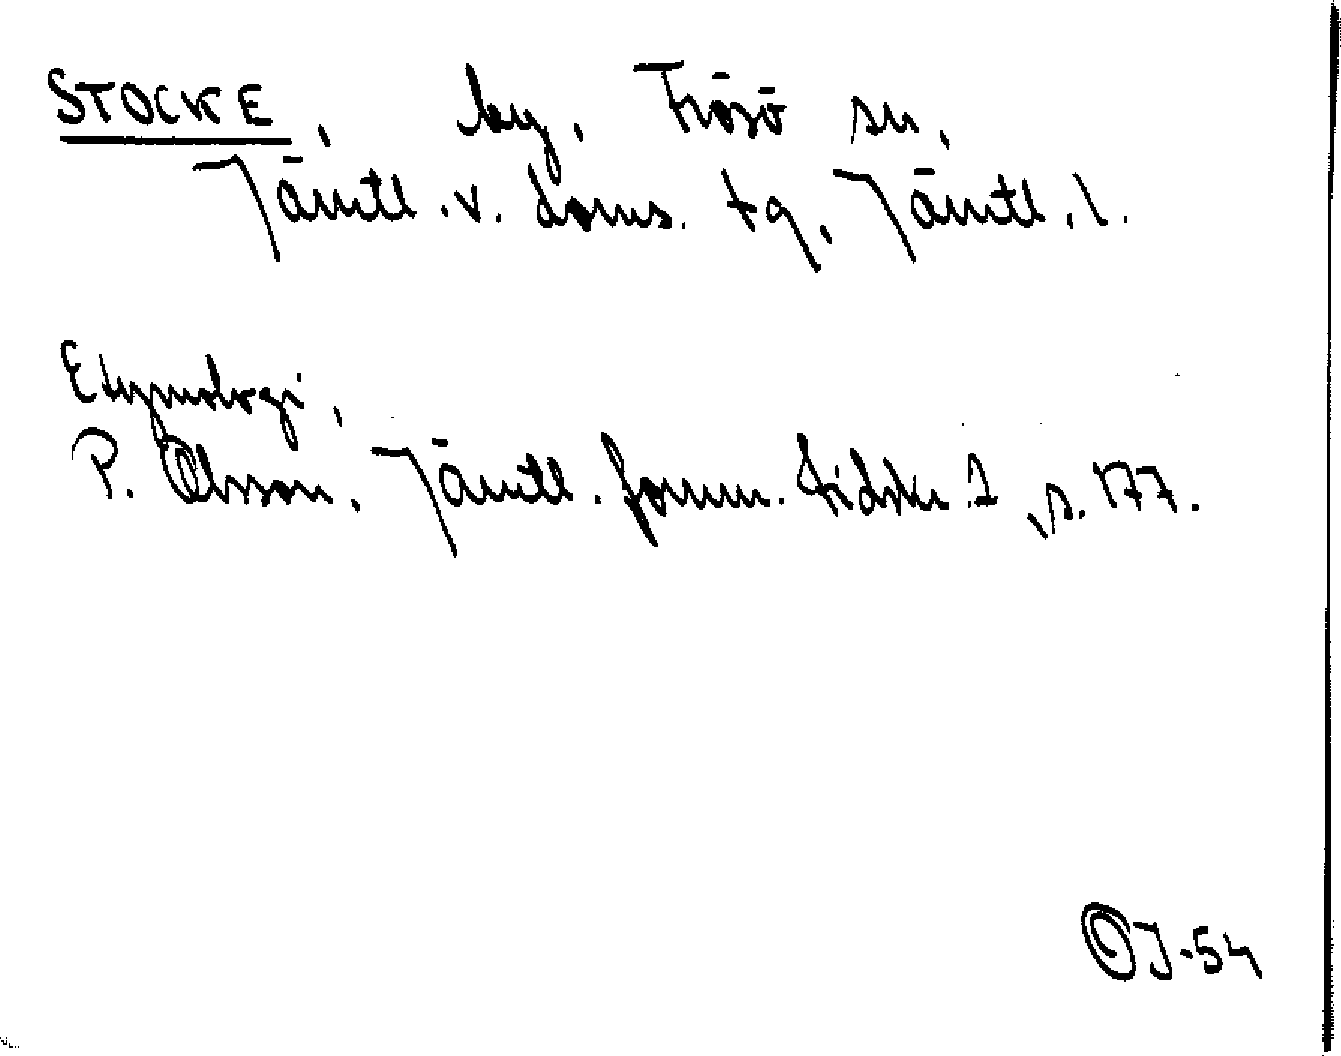 STOCKE, by, Frösö sn,
Jämtl. v. doms. tg, Jämtl. l.
Etymologi,
P. Olsson, Jämtl. fornm. tidskr 1, s. 177.
OJ-54